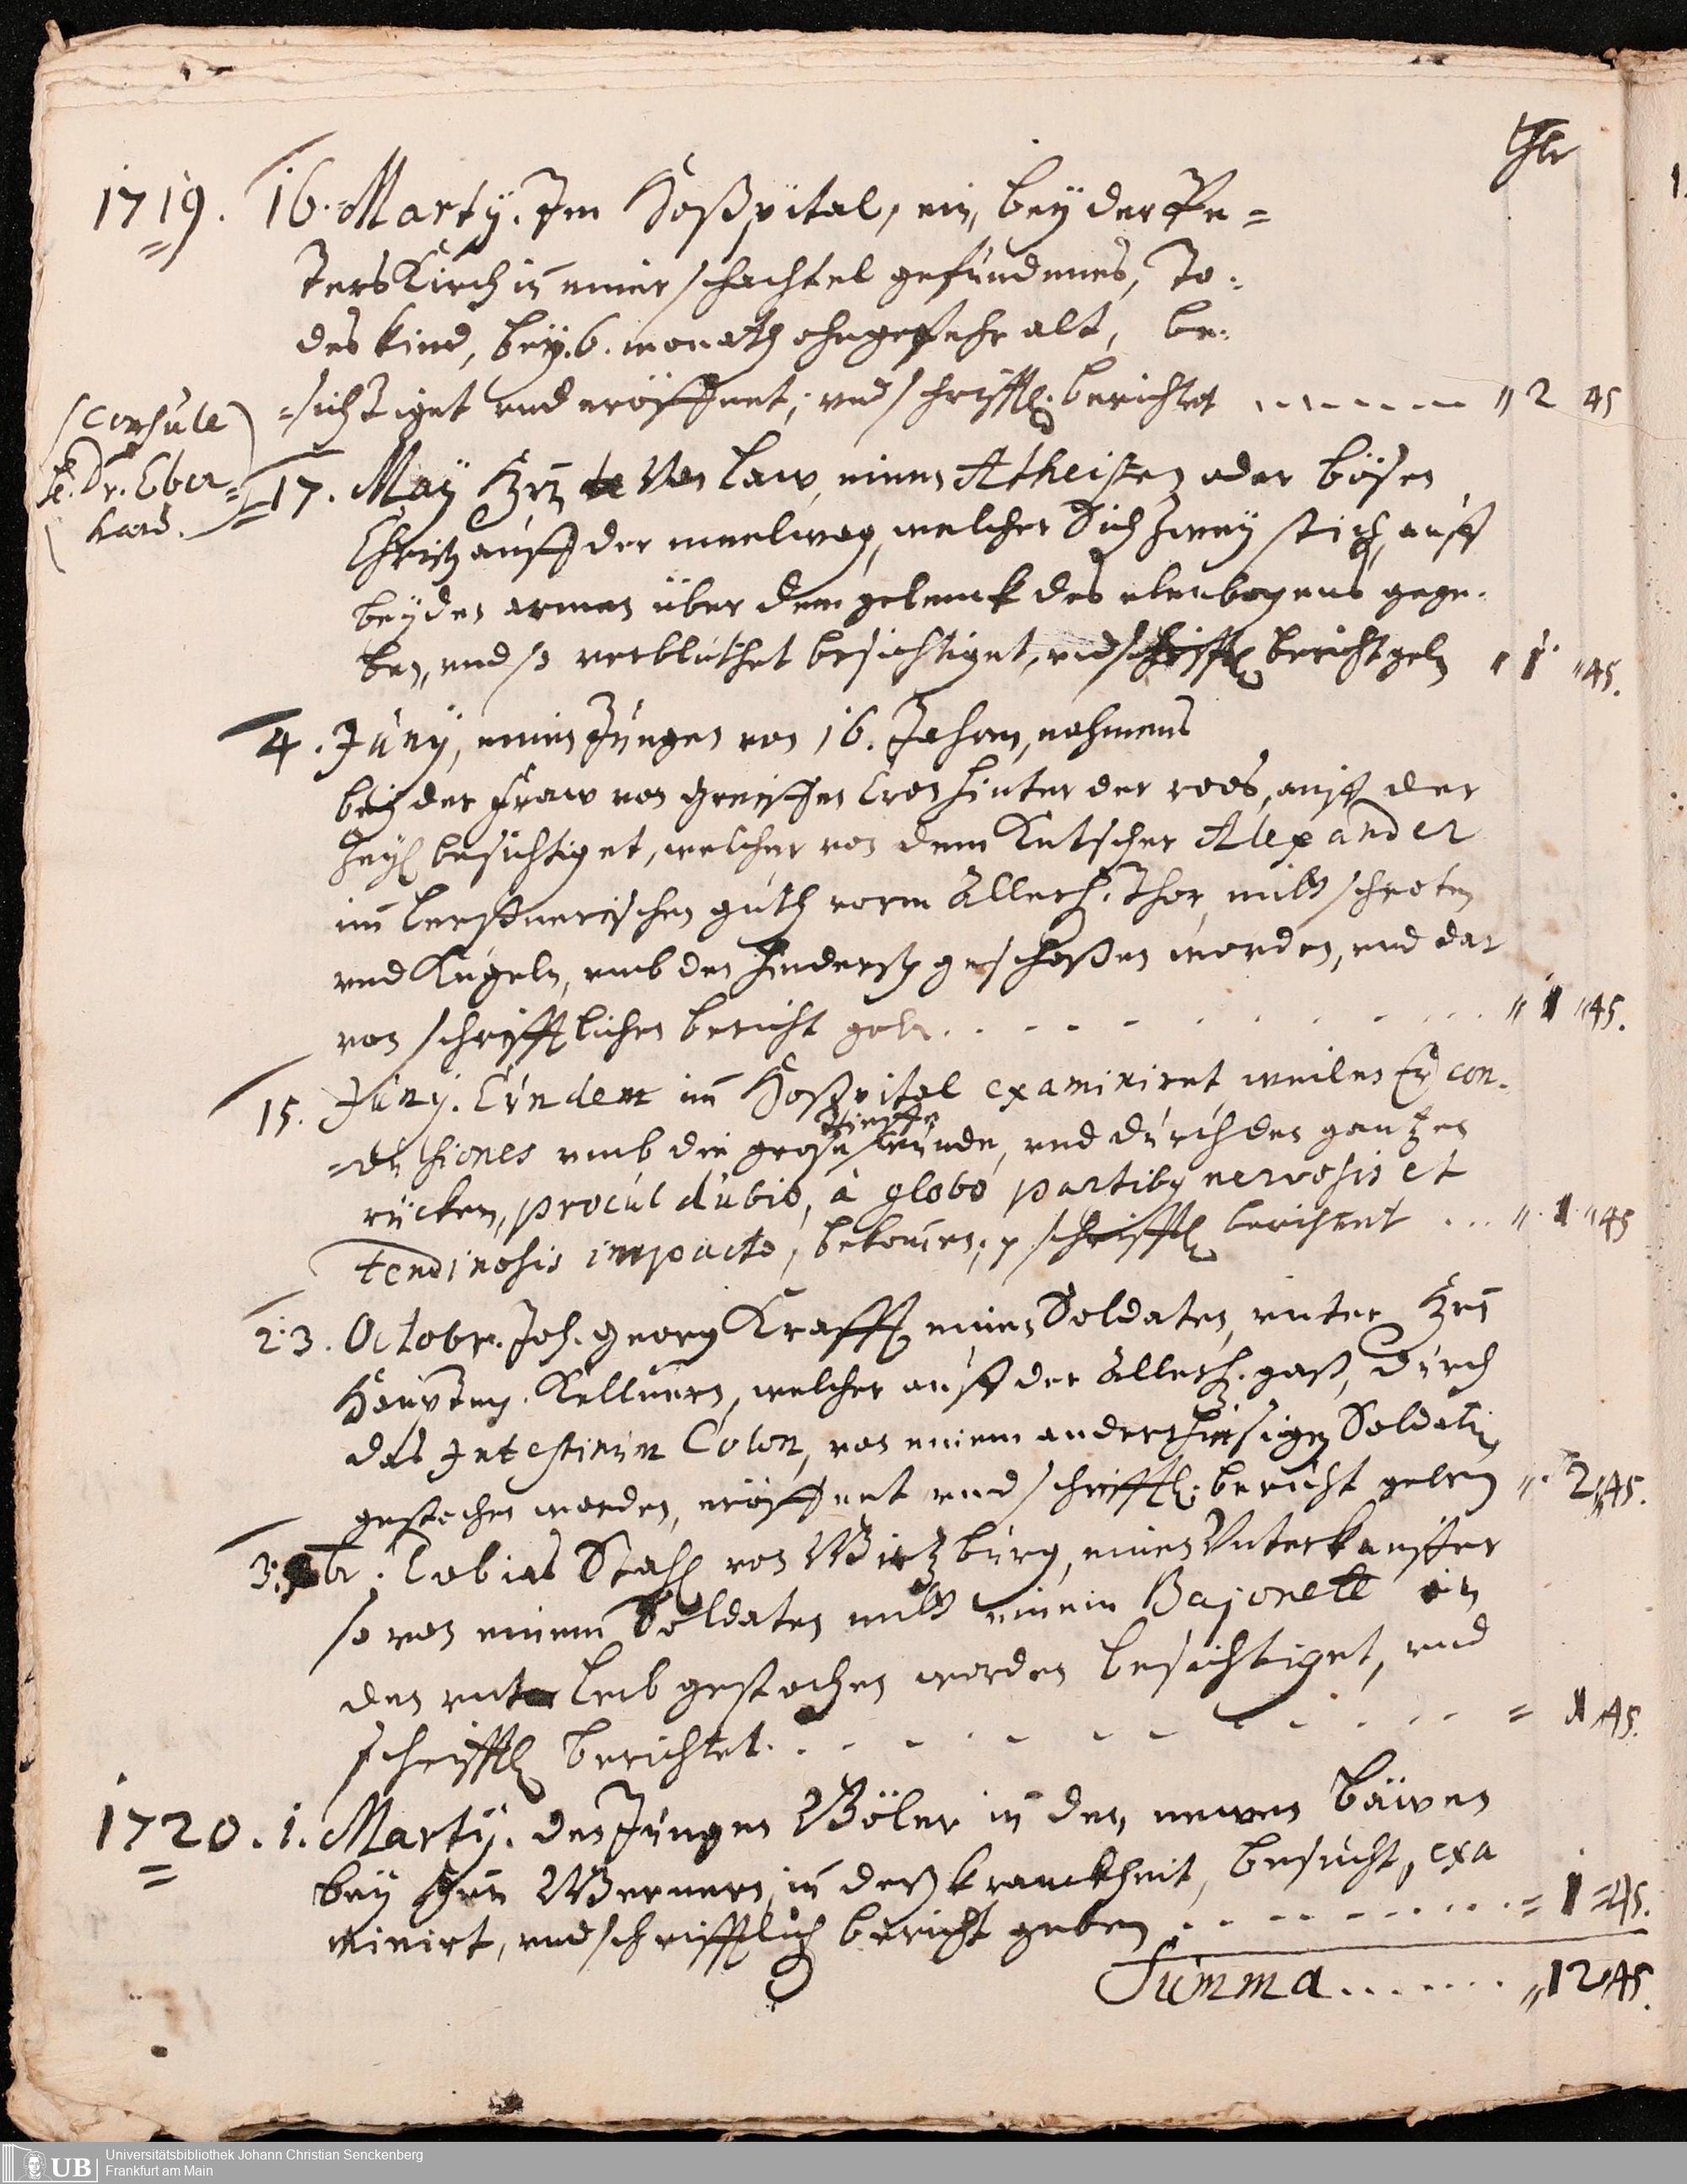 thlr
1719. 16. Martÿ. Im Hoßpital, ein, beÿ der Pe=
ters Kirch in einer schachtel gefundenes, To=
des kind, beÿ. 6. monath ohngefehr alt, be=
=sichtiget und eröffnet, und schrifftl. berichtet " 2 45
(Consule
H. Dr. Eber=
hard.
17. Maÿ Hrn von Law, einen Atheisten oder bösen
Christ auff der meelwag, welcher Sich zweÿ stich, auff
beÿden armen über dem gelenck des elenbogens gege=
ben, und so verbluthet besichtiget, und schrifftl bericht gebn " 1 " 45.
4. Junÿ, einen Jungen von 16. Jahren, nahmens
beÿ der Fraw von Greiffen Cron hinter der roos, auff der
Zeyl besichtiget, welcher von dem Kutscher Alexander
im Lerßnerischen guth vorm Allerh. Thor, mitt schroten
und Kugeln, umb den Hinderst geschoßen worden, und dar
von schrifftlichen bericht gebn " 1 " 45.
15. Junÿ. Eundem im Hoßpital examiniret, weilen Er con=
tieffe
=dusiones umb die große wunde, und durch den gantzen
rücken, procul dubio, à globo partibus nervosis et
tendinosis impacto, bekomen; schrifftl berichtet ... " 1 " 45
23. Octobr. Joh. Georg Krafft einen Soldaten, unter Hrn
Hauptm. Kellners, welcher auff der Allerh. gaß, durch
das Intestinum Colon, von einem andern hiesigen Soldaten
gestochen worden, eröffnet und schrifftl. bericht geben " 2 " 45.
br. Tobias Stahl von Wirtzburg, einen Unterkauffer
so von einem Soldaten mitt einem Bajonett in
den unter Leib gestochen worden besichtiget, und
schrifftl berichtet. = 1 45.
1720. 1. Martÿ. den Jungen Böler in den newen bäwen
beÿ Hrn Werners, in deß kranckheit, besucht, exa
minirt, und schrifftlich bericht geben = 1 = 45.
Summa....... " 12 " 45.
Universitätsbibliothek Johann Christian Senckenberg
Frankfurt am Main
UB